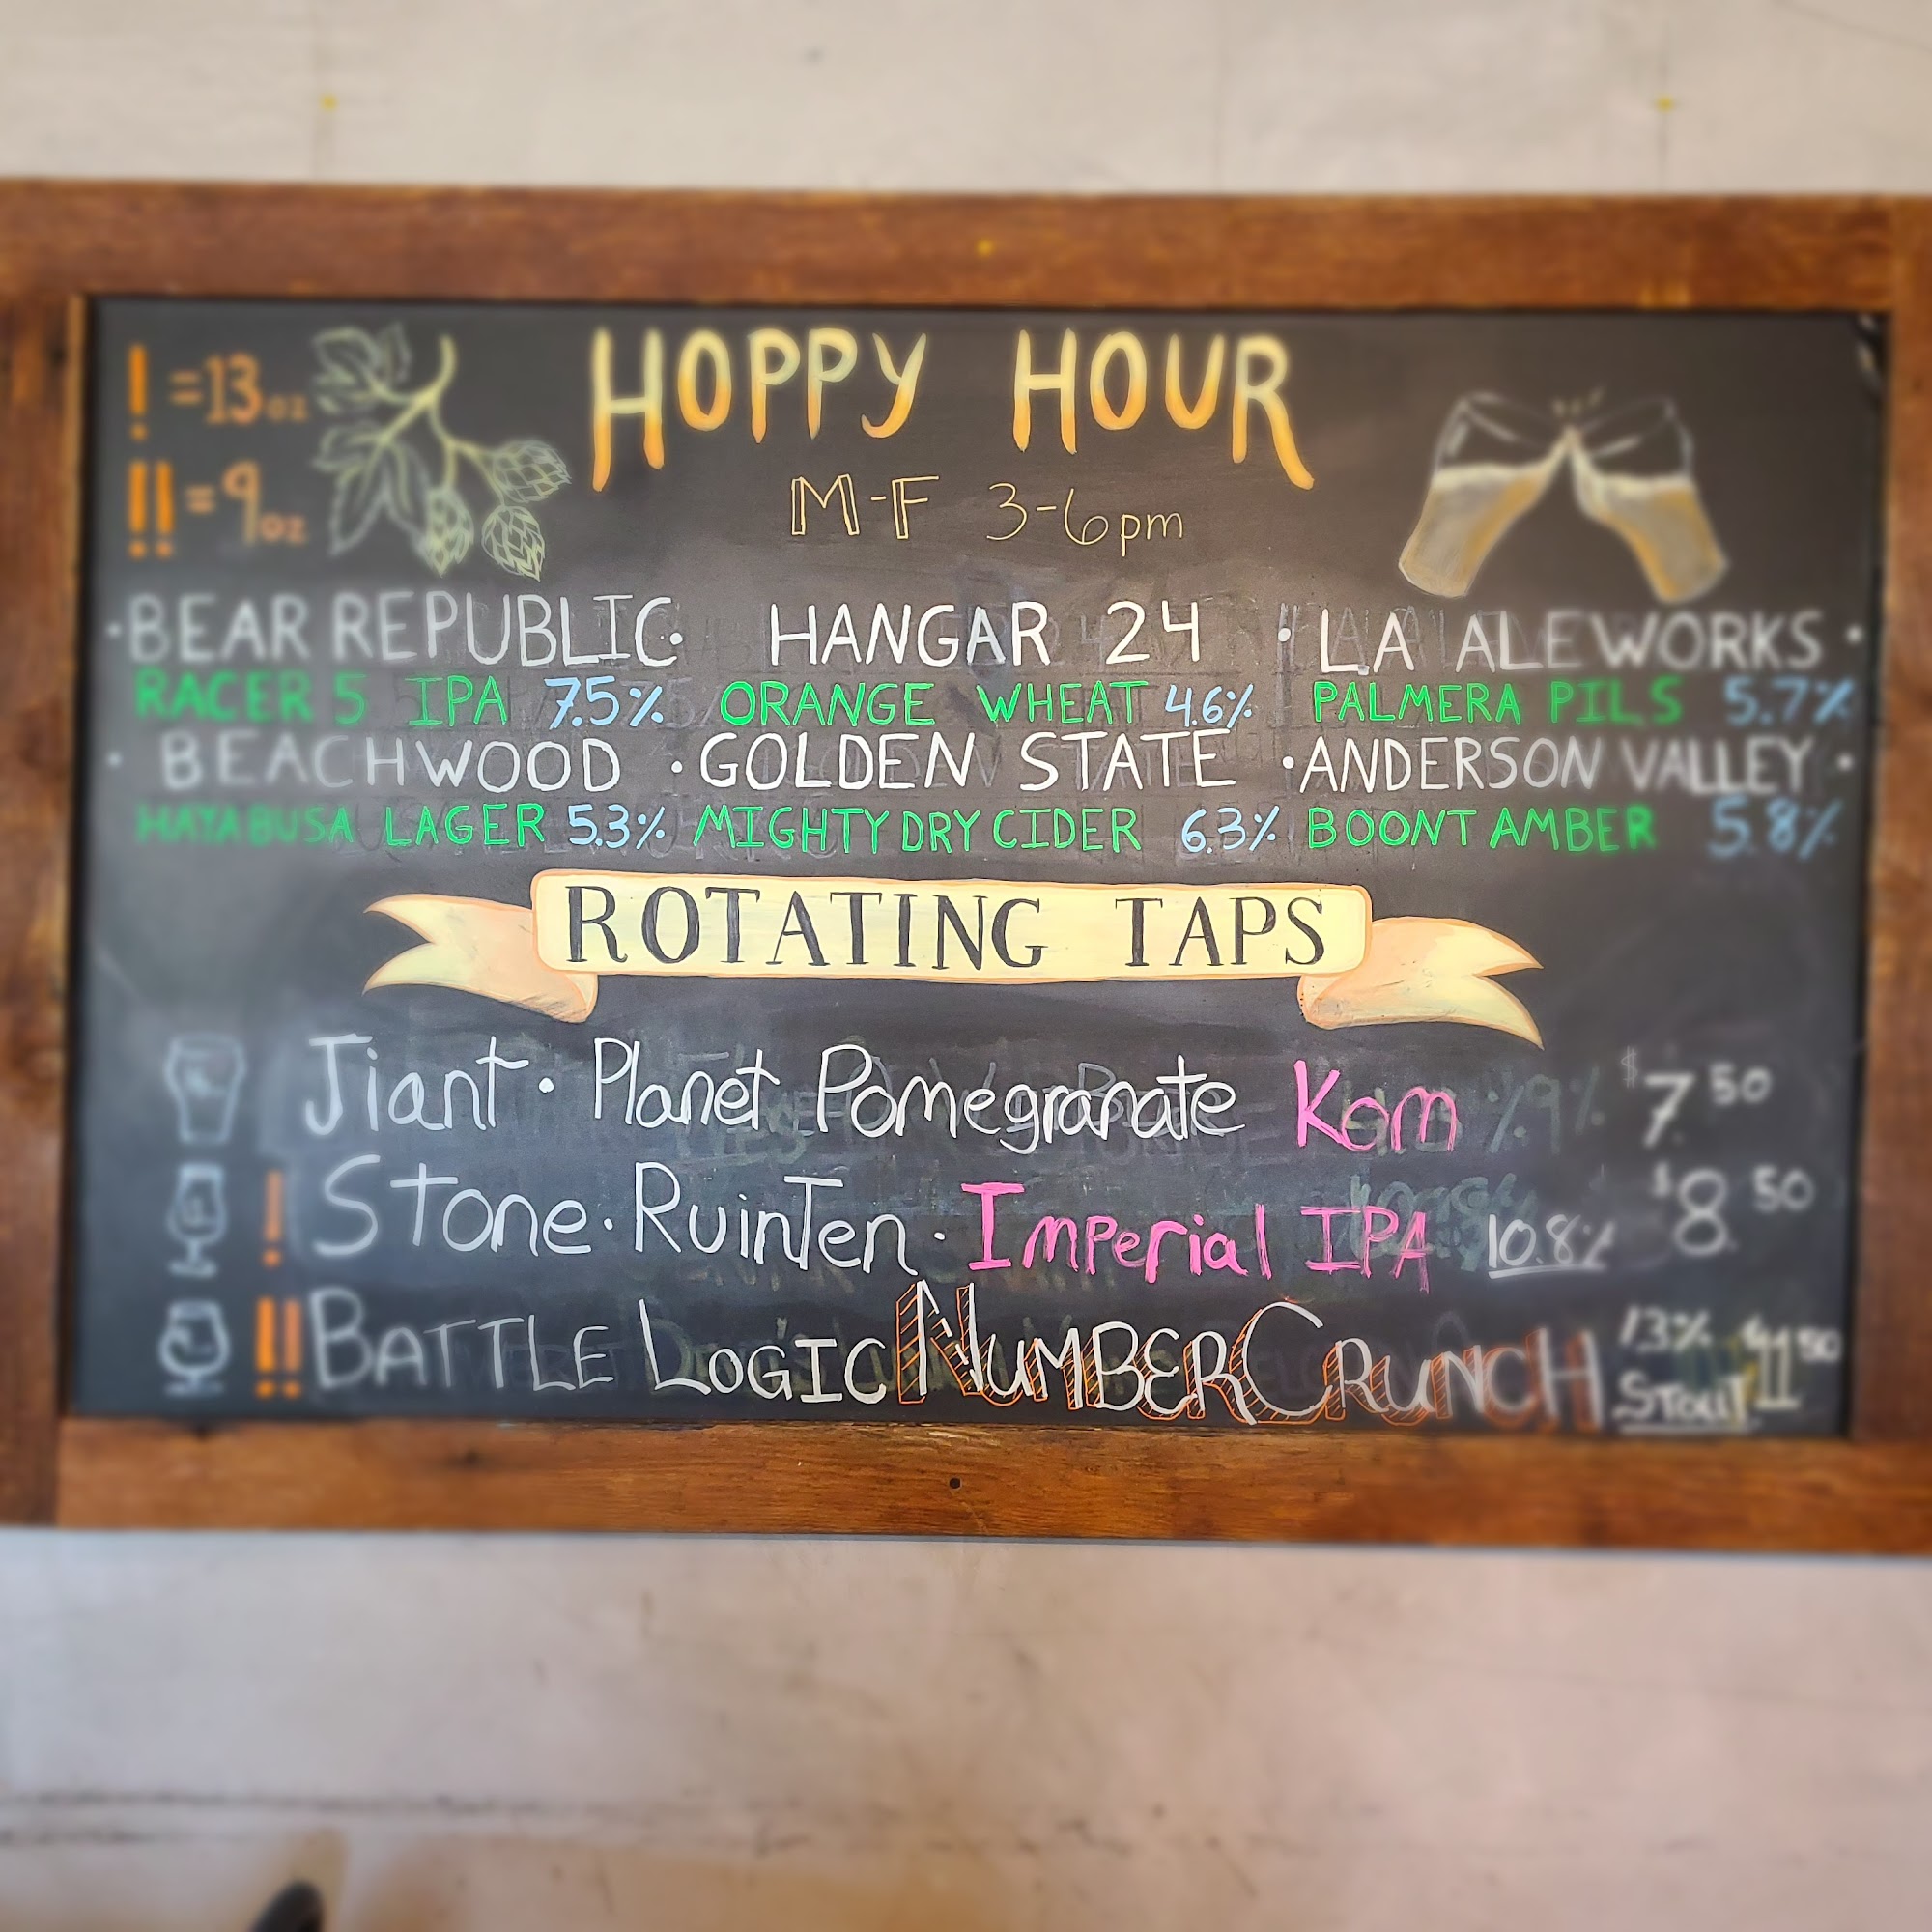 ! =13oz
!! =9oz
HOPPY HOUR
M-F 3-6pm
·BEAR REPUBLIC· HANGAR 24 · L.A ALEWORKS ·
RACER 5 IPA 7.5% ORANGE WHEAT 4.6% PALMERA PILS 5.7%
· BEACHWOOD · GOLDEN STATE · ANDERSON VALLEY ·
HAYABUSA LAGER 5.3% MIGHTY DRY CIDER 6.3% BOONT AMBER 5.8%
ROTATING TAPS
Jiant · Planet Pomegranate Kom $7 50
! Stone · RuinTen · Imperial IPA 10.8% $8 50
!! BATTLE LOGIC NUMBERCRUNCH 13% STOUT $11 50